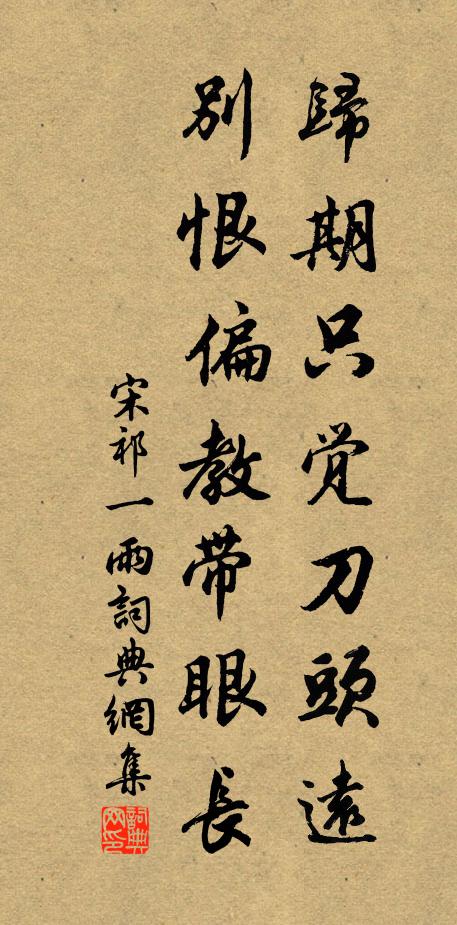 歸期只覺刀頭遠
別恨偏教帶眼長
宋祁一兩詞典網集
詞典网印